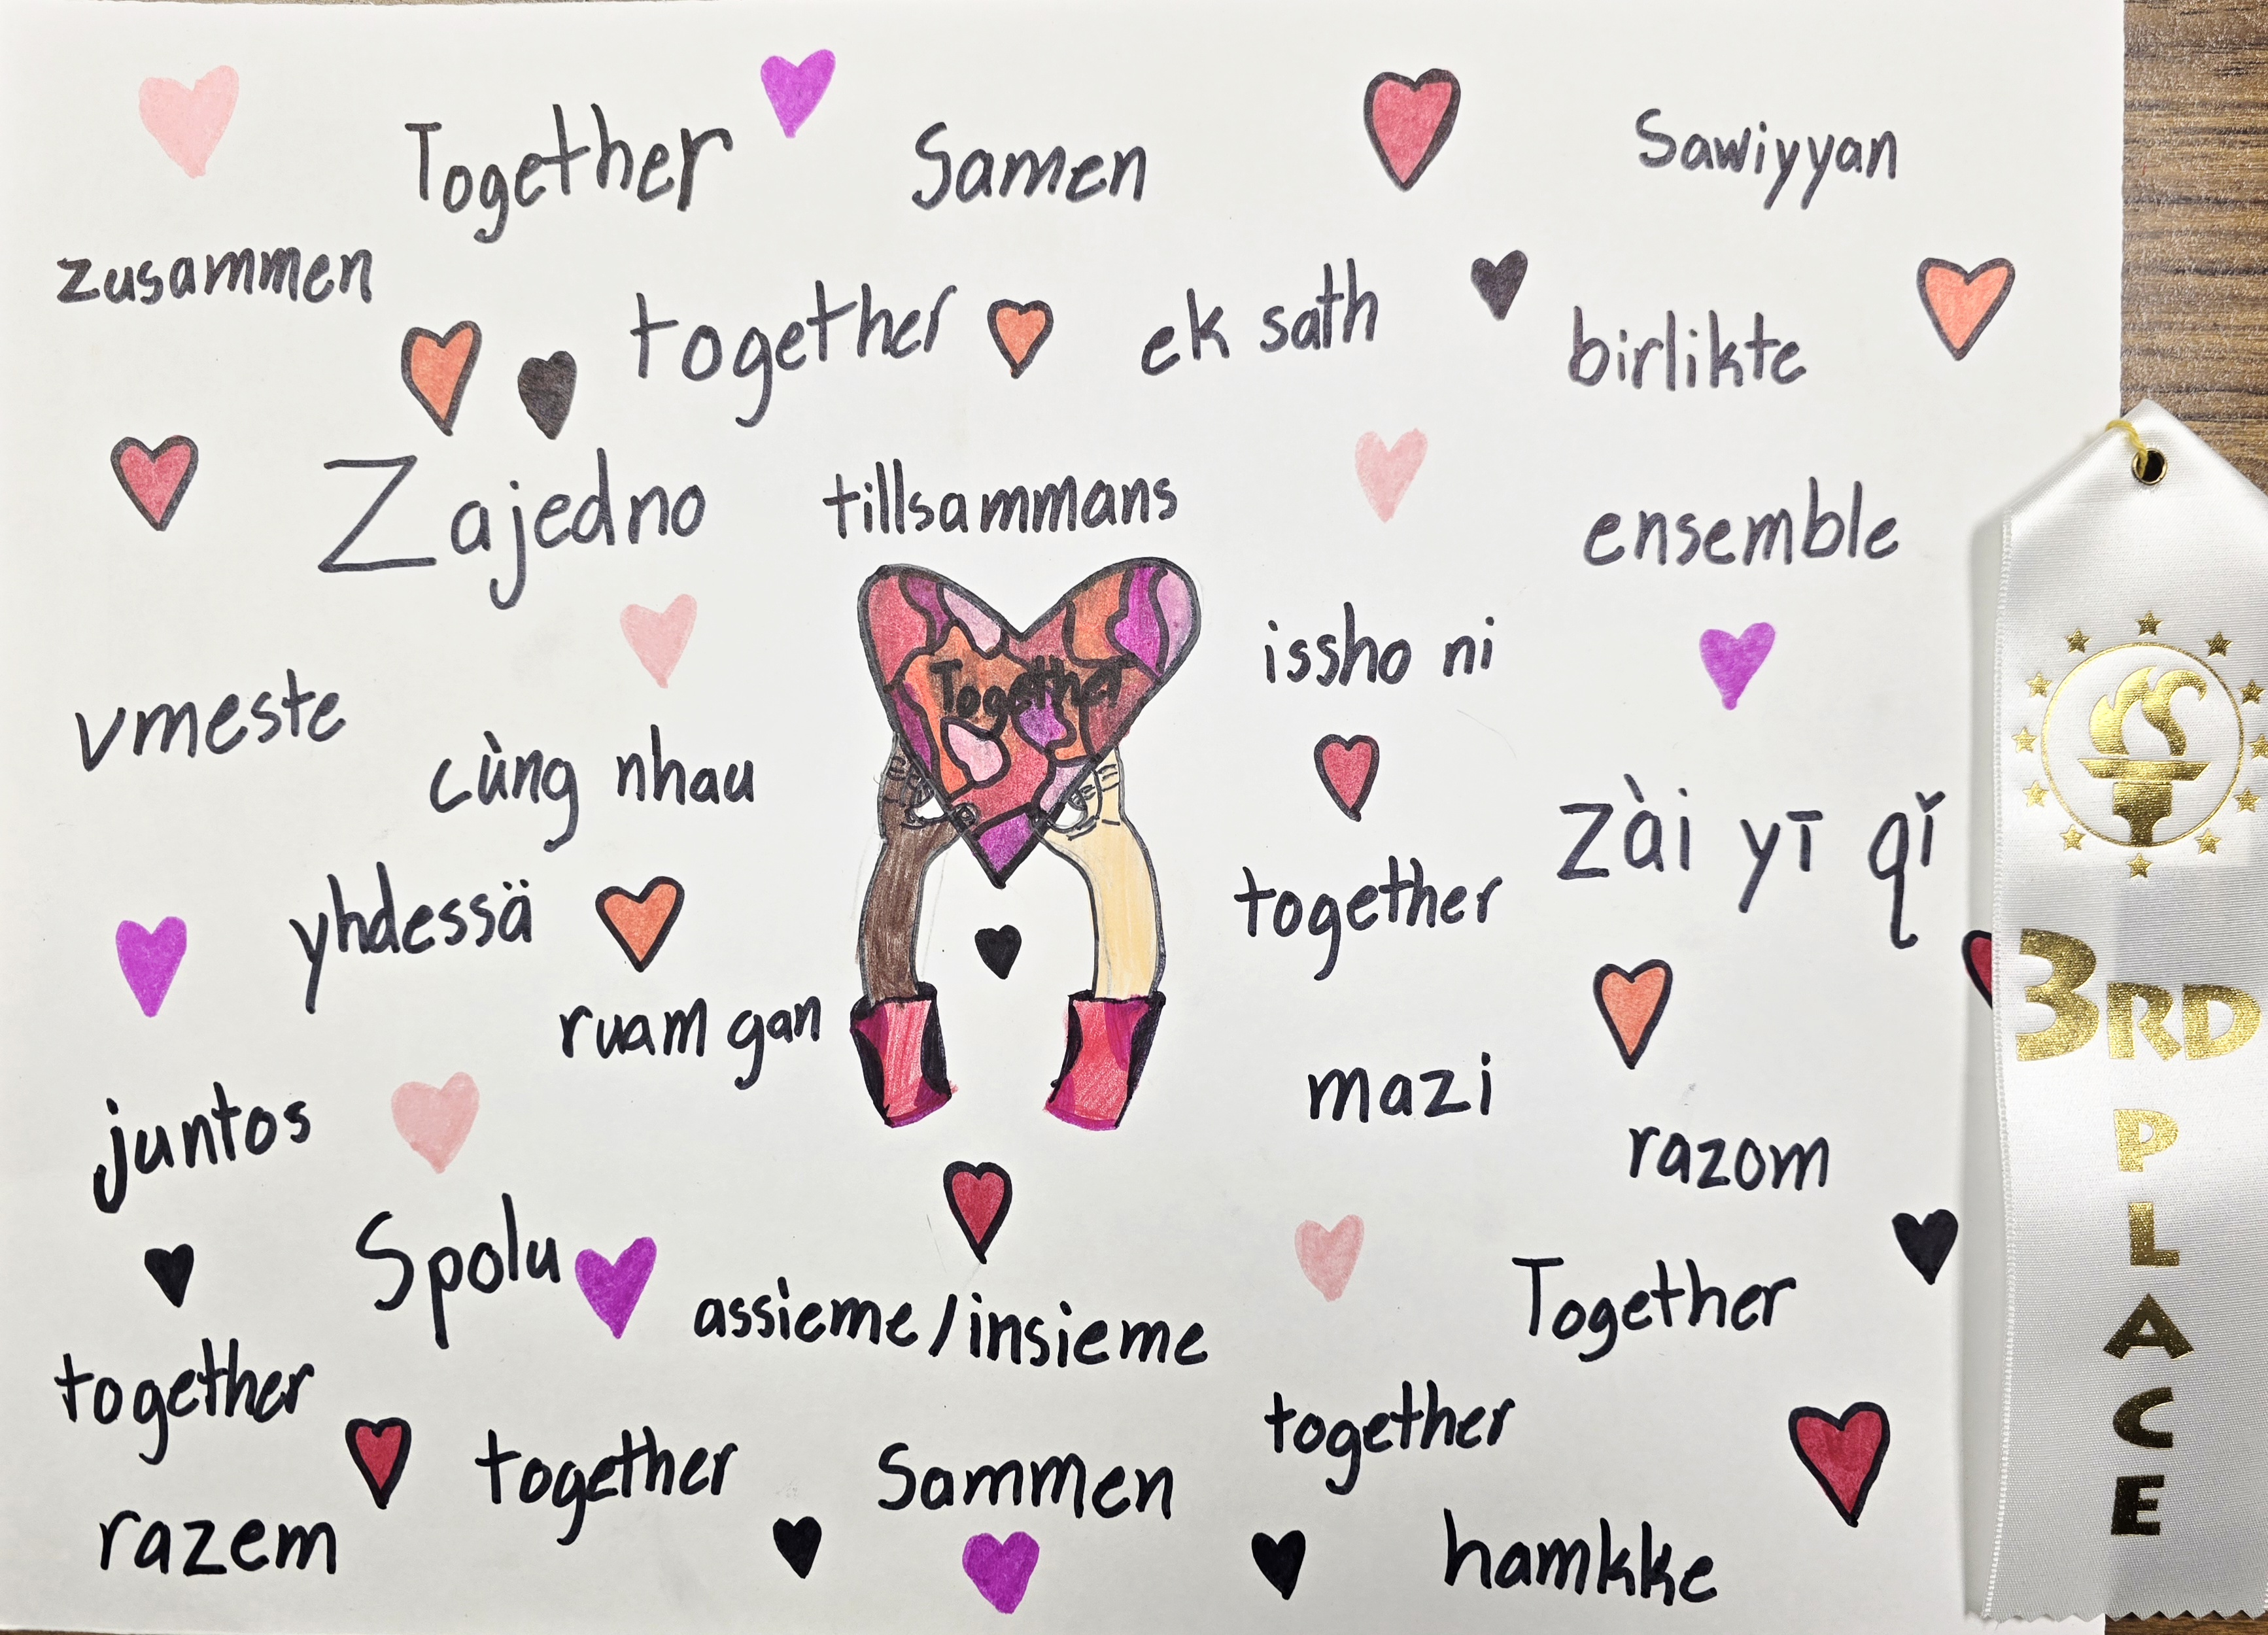 Together
Samen
Sawiyyan
zusammen
together
ek sath
birlikte
Zajedno
tillsammans
ensemble
Together
issho ni
vmeste
cùng nhau
zài yī qǐ
yhdessä
together
ruam gan
mazi
juntos
razom
Spolu
assieme/insieme
Together
together
together
Sammen
together
razem
hamkke
3RD
PLACE